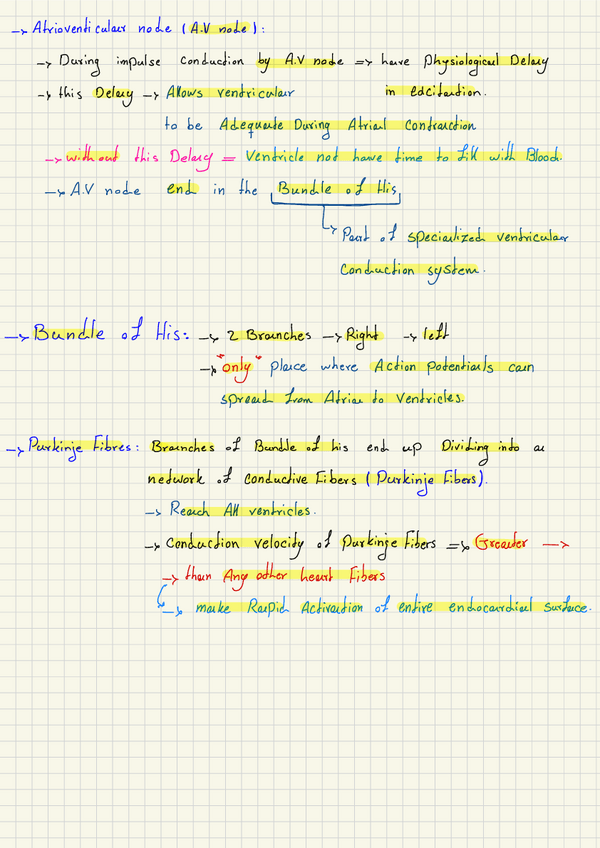 → Atrioventicular node (A.V node):
→ During impulse conduction by A.V node ⇒ have Physiological Delay
in Excitation.
→ this Delay → Allows ventricular
to be Adequate During Atrial Contraction
→ without this Delay = Ventricle not have time to fill with Blood.
→ A.V node end in the Bundle of His
↳ Part of specialized ventricular
Conduction system.
→ Bundle of His: → 2 Branches → Right → left
→ "only" place where Action potentials can
spread from Atria to Ventricles.
→ Purkinje Fibres: Branches of Bundle of his end up Dividing into a
network of conductive Fibers (Purkinje Fibers).
→ Reach All ventricles.
→ Conduction velocity of Purkinje Fibers ⇒ Greater →
→ than Any other heart Fibers
→ make Rapid Activation of entire endocardial surface.